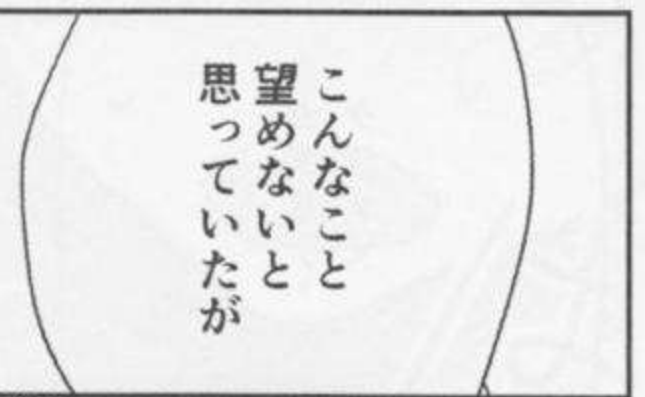 こんなこと
望めないと
思っていたが